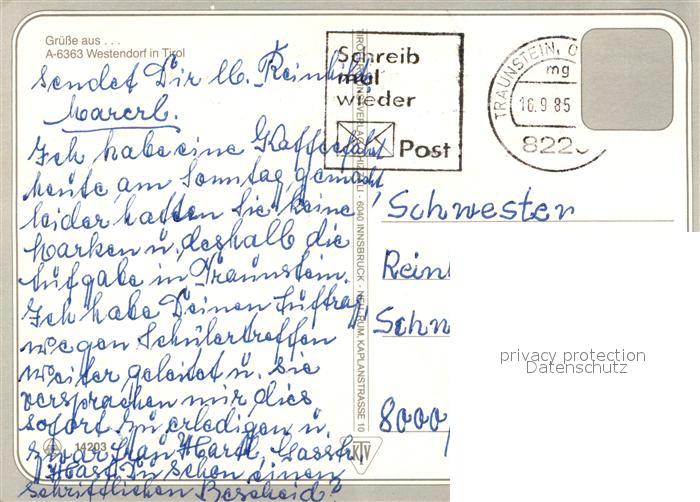 Grüße aus . . .
A-6363 Westendorf in Tirol
sendet Dir lb. Reinhilde
Ich habe eine Kaffeefahrt
heute, am Sonntag, gemacht,
leider hatten Sie keine
Marken u. deshalb die
Aufgabe in Traunstein.
Ich habe Deinen Auftrag
wegen Schülertreffen
weiter geleitet u. sie
versprachen mir dies
sofort zu erledigen u.
zwar Frau Hartl, Gasstr.
Hast Du schon einen
schriftlichen Bescheid?
14203
KTV
6040 INNSBRUCK - NEU-RUM, KAPLANSTRASSE 10
Schreib
mal
wieder
Post
TRAUNSTEIN,
mg
16.9.85
822
Schwester
Rein
Schw
8000
privacy protection
Datenschutz